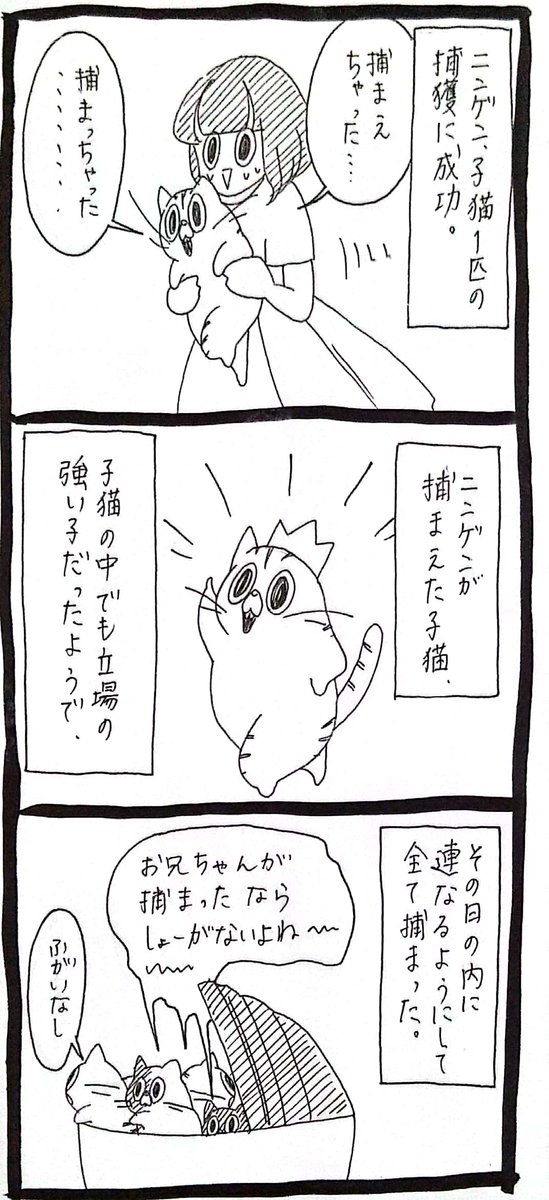 ニンゲン、子猫1匹の
捕獲に、成功。
捕まえ
ちゃった…
捕まっちゃった
・・・・・・・
ニンゲンが
捕まえた子猫、
子猫の中でも立場の
強い子だったようで、
その日の内に
連なるようにして
全て捕まった。
お兄ちゃんが
捕まったなら
しょーがないよね〜
〜〜
ふがいなし